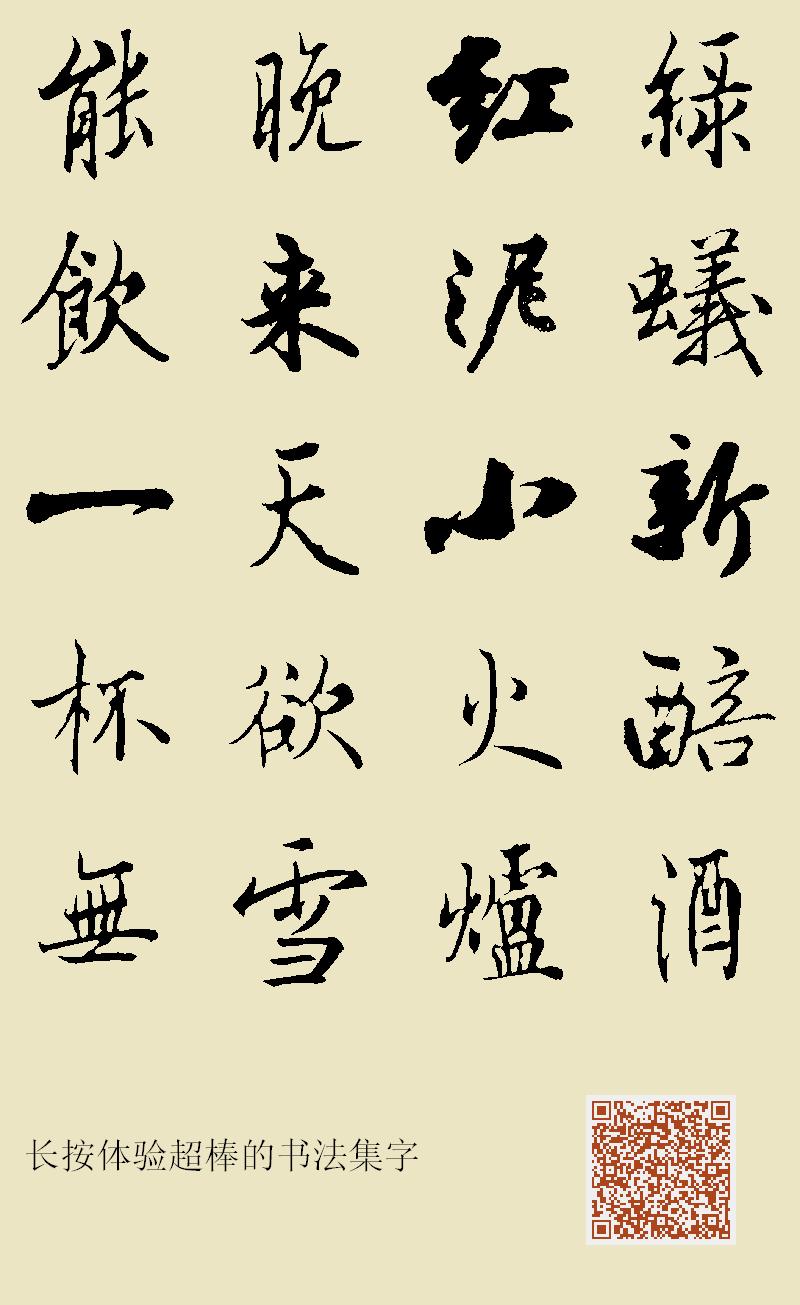 綠蟻新醅酒
紅泥小火爐
晚来天欲雪
能飲一杯無
长按体验超棒的书法集字